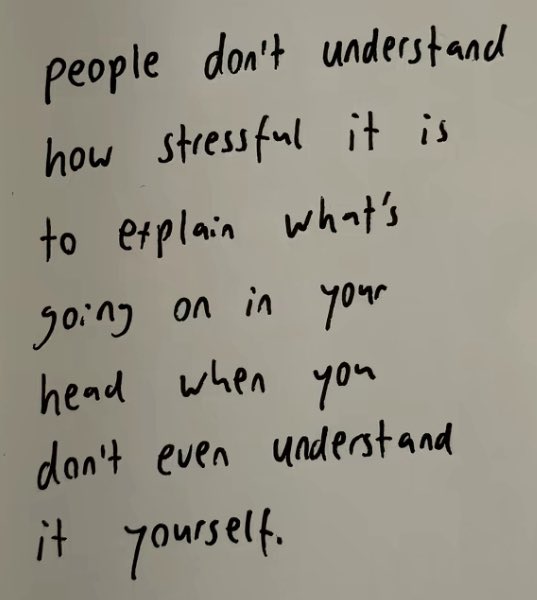 people don't understand
how stressful it is
to explain what's
going on in your
head when you
don't even understand
it yourself.